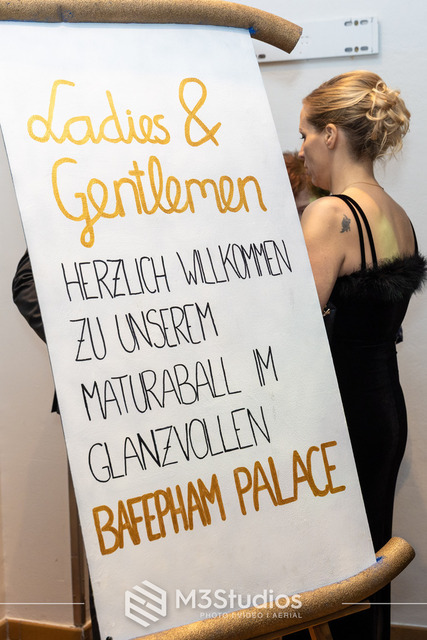 Ladies &
Gentlemen
HERZLICH WILLKOMMEN
ZU UNSEREM
MATURABALL IM
GLANZVOLLEN
BAFEPHAM PALACE
M3Studios
PHOTO | VIDEO | AERIAL